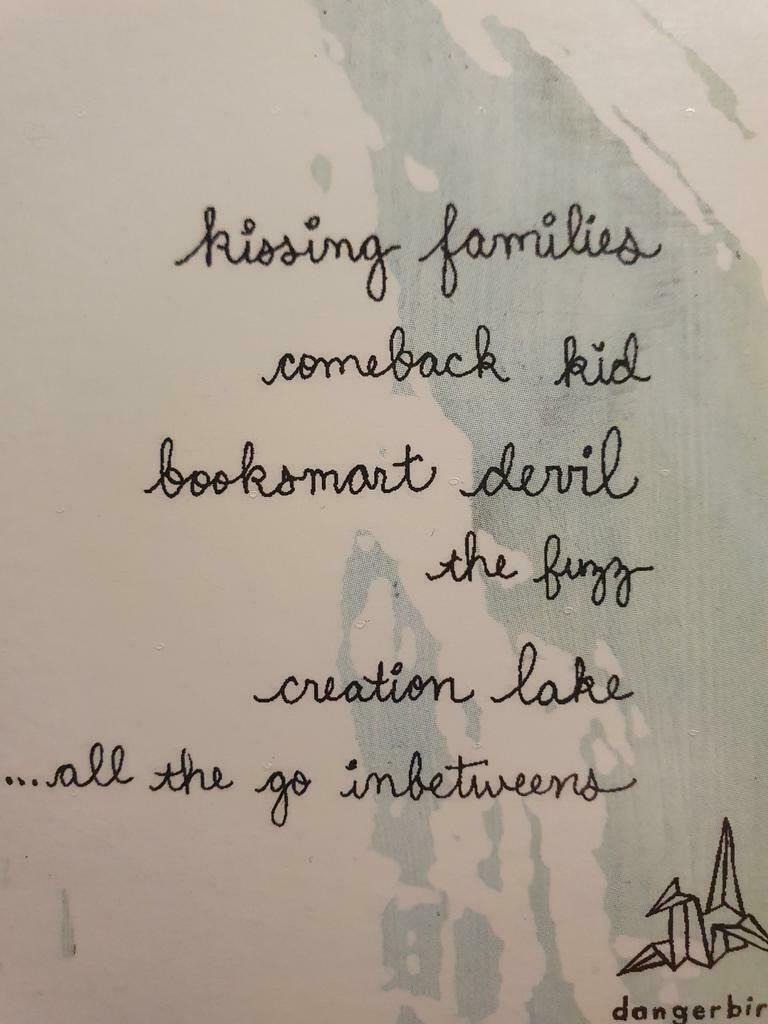 kissing families
comeback kid
booksmart devil
the fuzz
creation lake
...all the go inbetweens
dangerbir